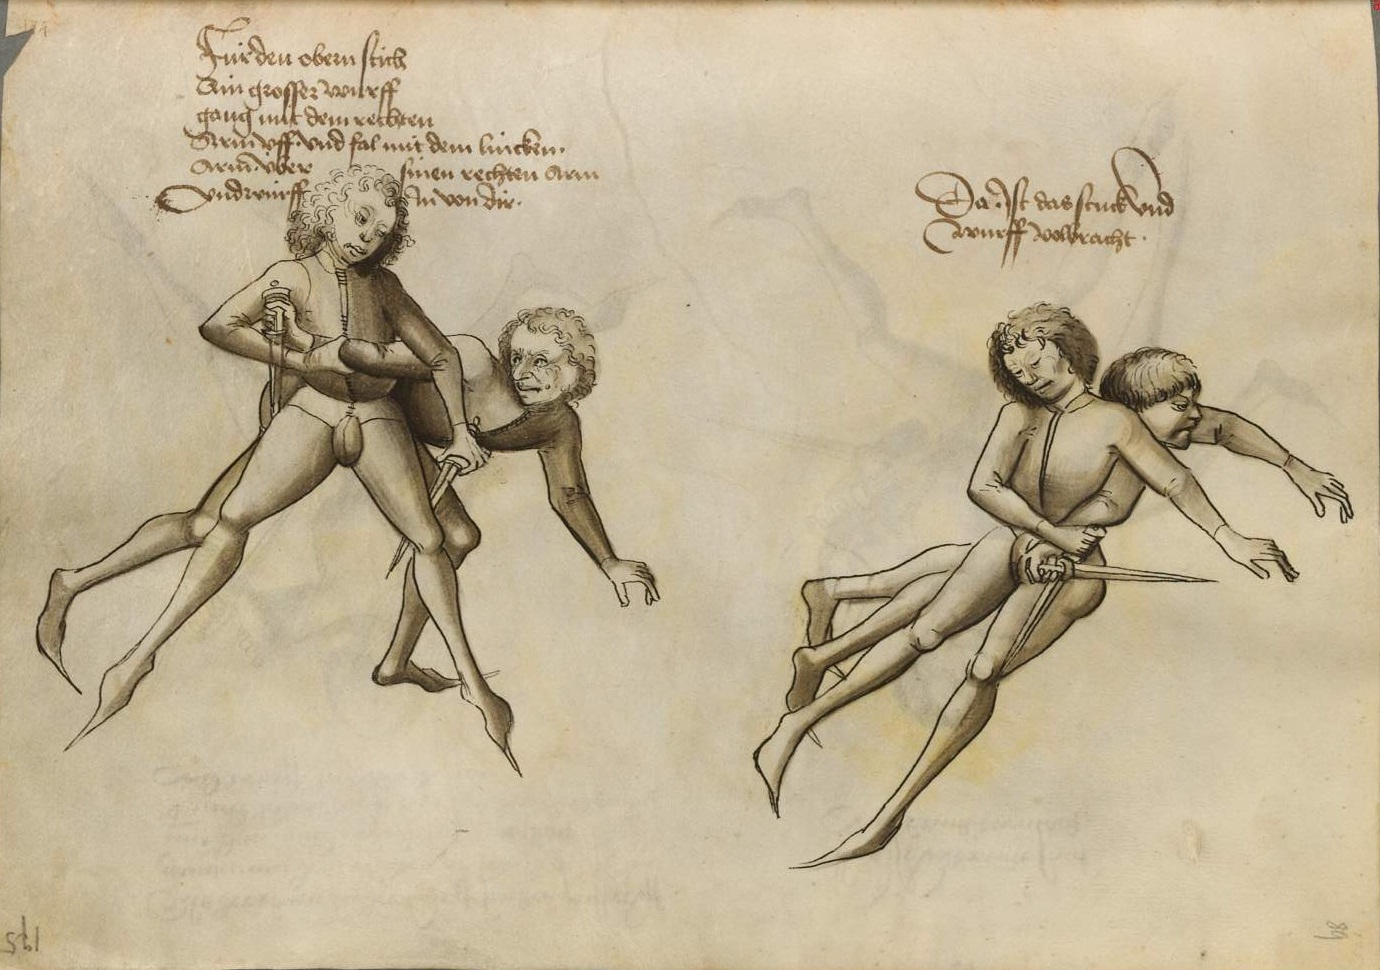 Für den obern stich
Ain grosser wurff
gang mit dem rechten
Arm uff und fal mit dem lincken
Arm über sinen rechten Arm
und würff In von dir.
Da Ist das stuck und
wurff volbracht.